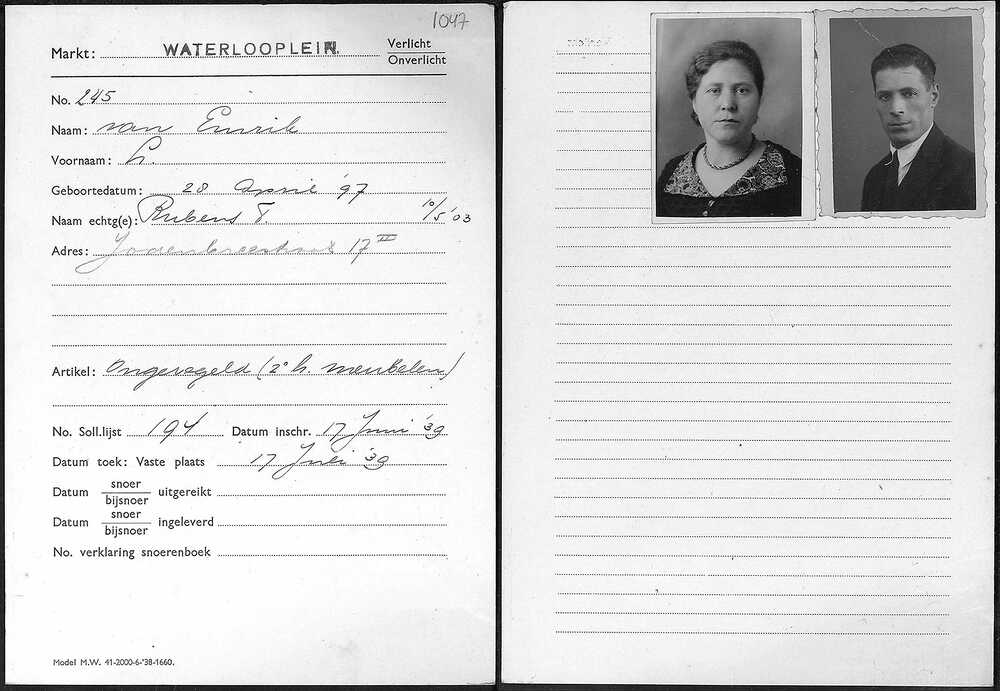 1047
Markt: WATERLOOPLEIN. Verlicht
Onverlicht
No. 245
Naam: van Emrik
Voornaam: L.
Geboortedatum: 28 April '97
Naam echtg(e): Rubens 10/5 '03
Adres: Jodenbreestraat 17 II
Artikel: Ongeregeld (2e h. meubelen)
No. Soll.lijst 194 Datum inschr. 17 Juni '39
Datum toek: Vaste plaats 17 Juli '39
Datum snoer
bijsnoer uitgereikt
Datum snoer
bijsnoer ingeleverd
No. verklaring snoerenboek
Model M.W. 41-2000-6-'38-1660.